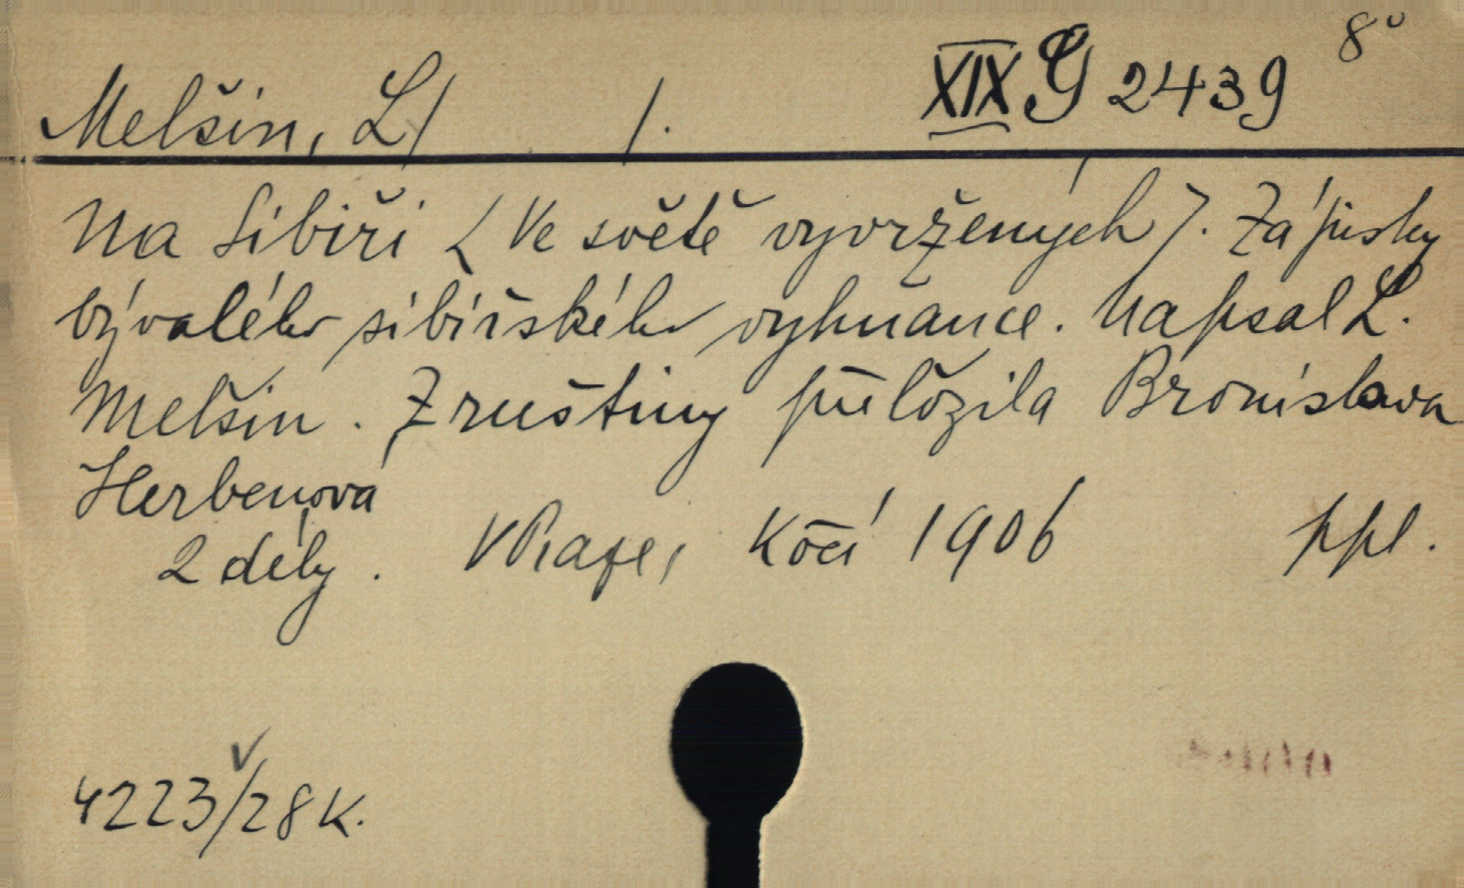 8°
Melšin, L/ /. XIX G 2439
Na Sibiři (Ve světě vyvržených). Zápisky
bývalého sibiřského vyhnance. Napsal L.
Melšin. Z ruštiny přeložila Bronislava
Herbenová
2 díly. V Praze, Kočí 1906 ppl.
4223/28 K.